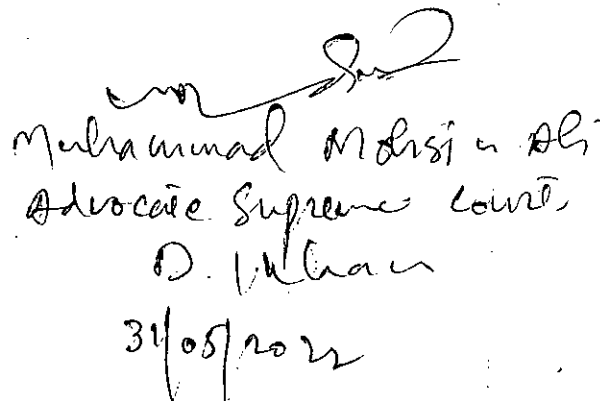 Muhammad Mohsin Ali
Advocate Supreme Court,
D.I.Khan
31/05/2022